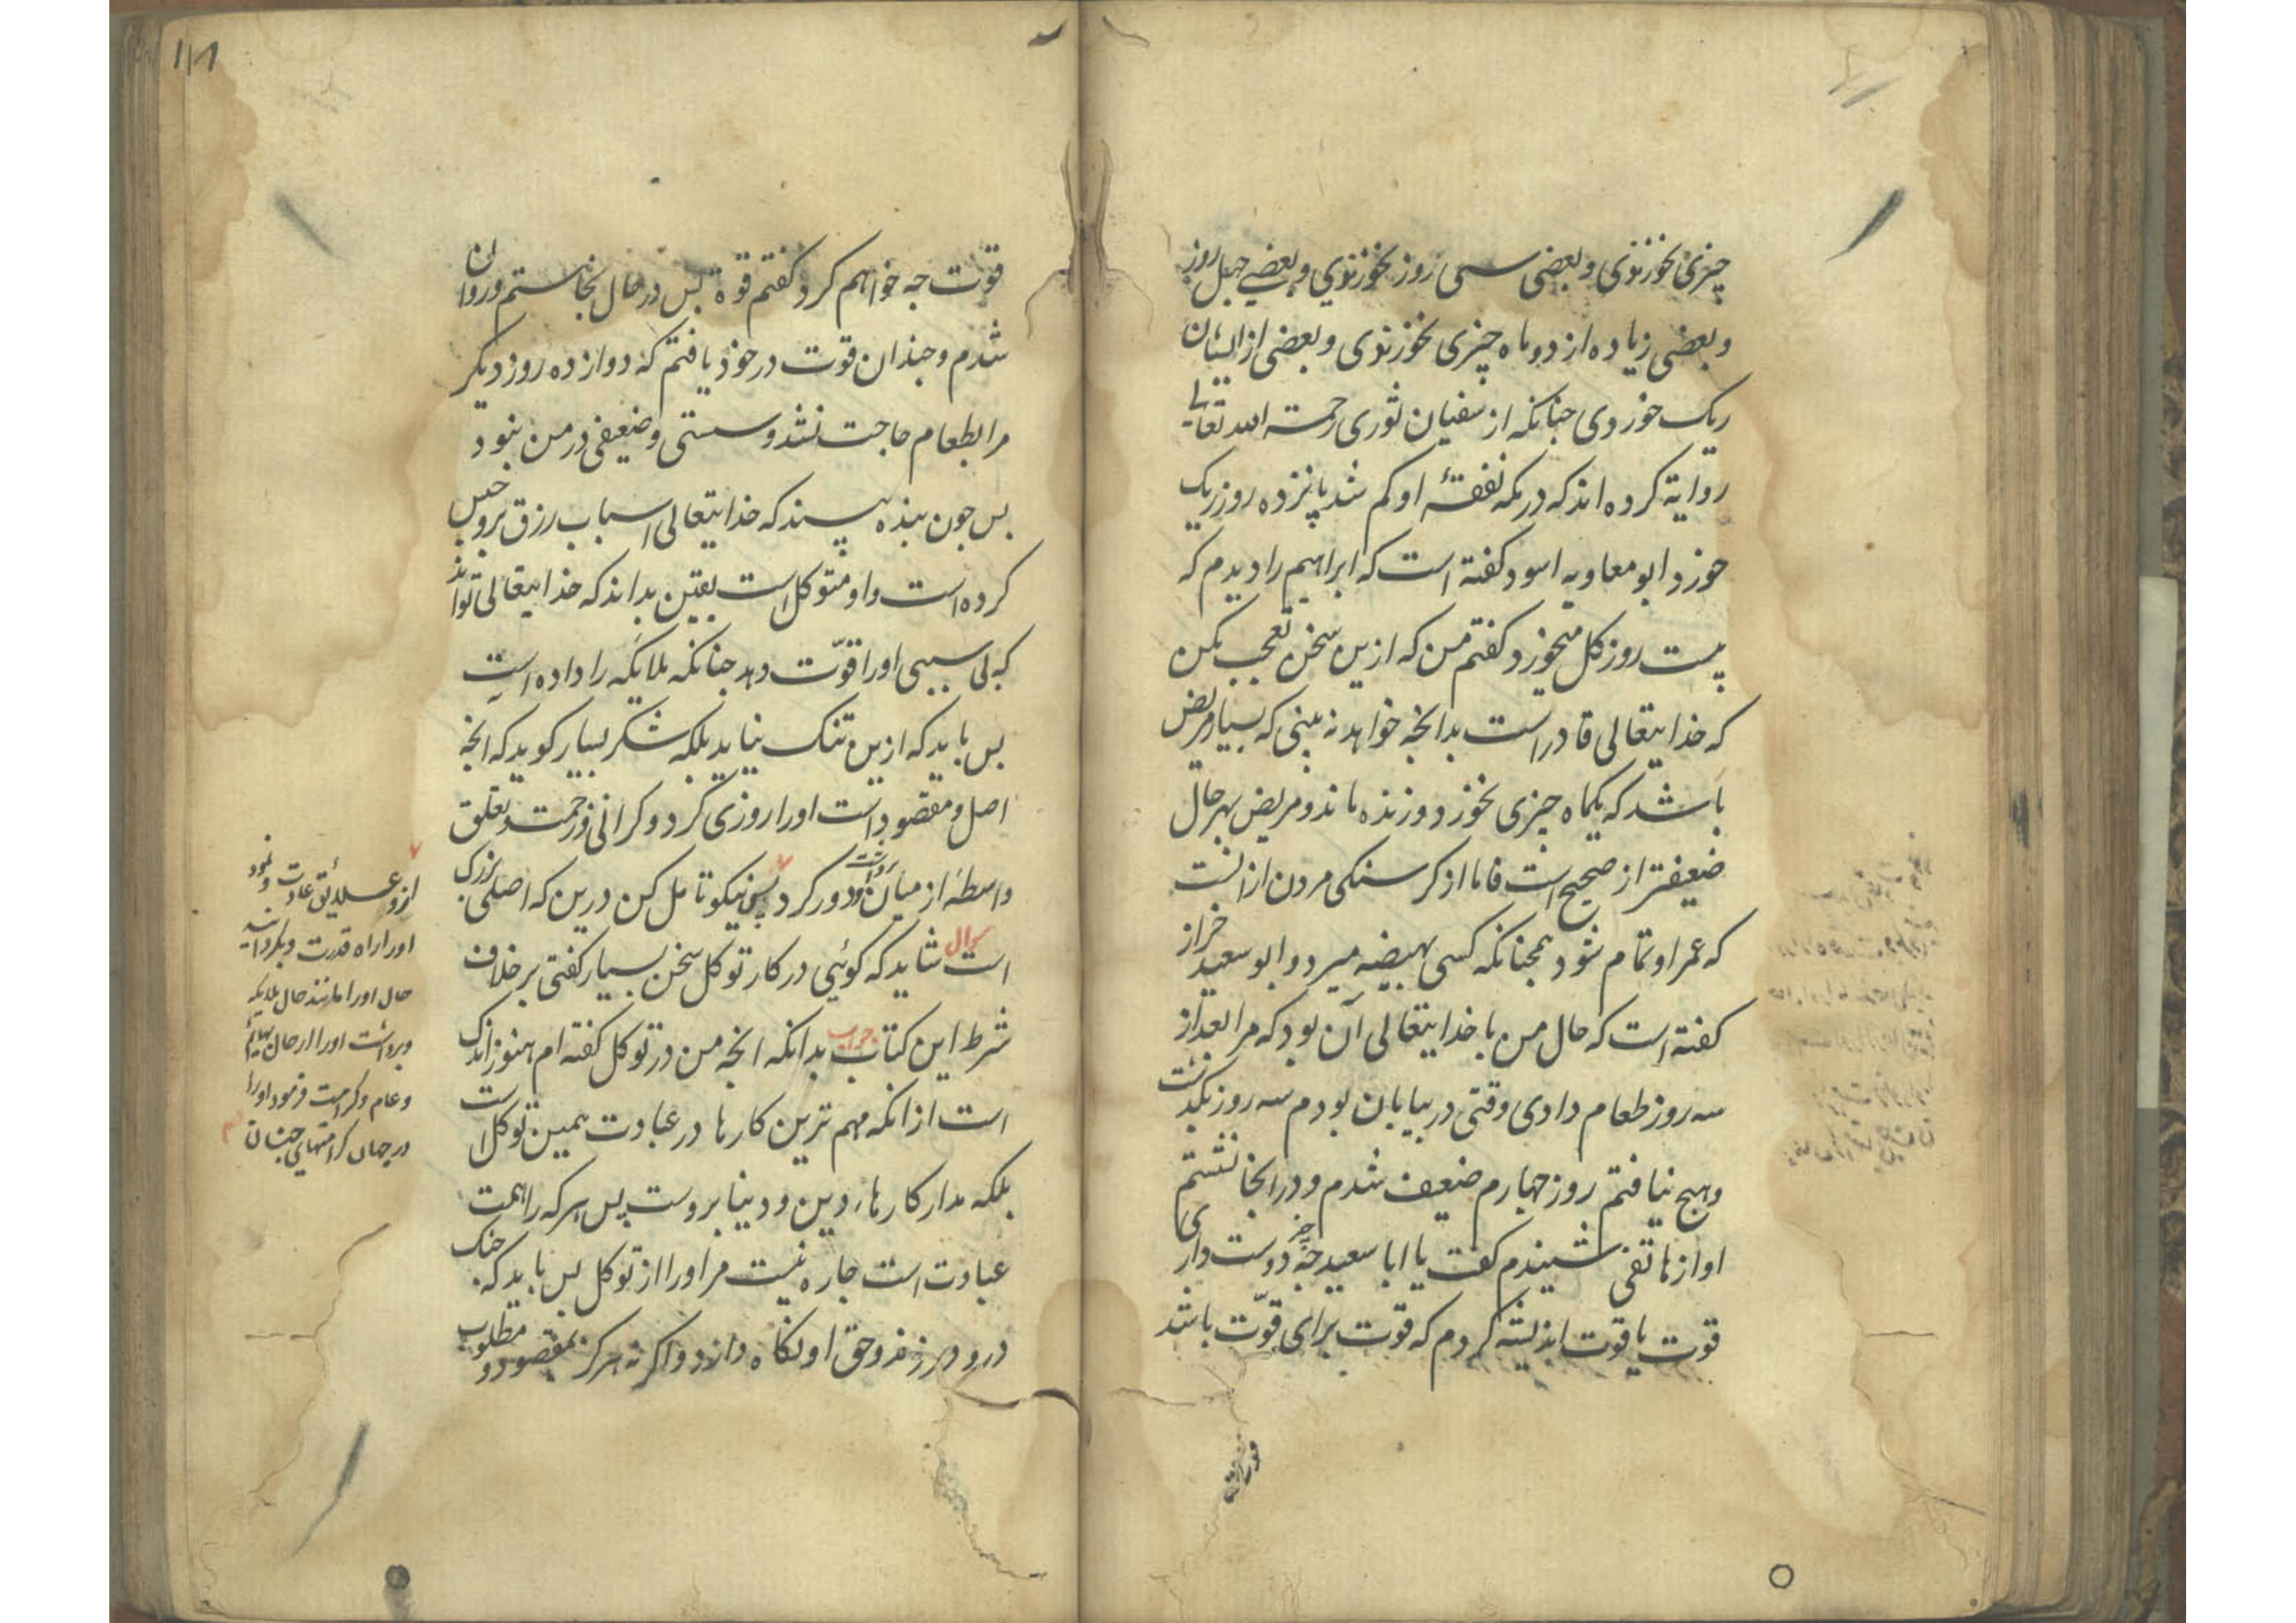 چیزی نخوزنوی و بعضی سی روز نخوزنوی و بعضی چهل روز
و بعضی زیاده از دو ماه چیزی نخوزنوی و بعضی از ایشان
ریک خوردی جنانکه از سفیان ثوری رحمة الله تعالی
روایة کرده اند که در مکه نفقهٔ او کم شد پانزده روز ریک
خورد و ابو معاویه اسود کفته است که ابراهیم را دیدم که
بیست روز کل میخورد کفتم من که ازین سخن تعجب مکن
که خدایتعالی قادر است بدانجه خواهد نه بینی که بسیار مریض
باشد که یکماه چیزی نخورد و زنده ماند و مریض بهر حال
ضعیفتر از صحیح است فاما از کرسنکی مردن از انست
که عمر او تمام شود همجنانکه کسی بهیضه میرد و ابو سعید خراز
کفته است که حال من با خدایتعالی آن بود که مرا بعد از
سه روز طعام دادی وقتی در بیابان بودم سه روز بکذشت
و هیج نیافتم روز جهارم ضعیف شدم و در انجا نشستم
اواز هاتفی شنیدم کفت یا ابا سعید جه چیز دوست داری
قوت یا قوت اندیشه کردم که قوت برای قوّت باشد
۱۸۱
قوت جه خواهم کرد کفتم قوة بس در حال بخاستم و روان
شدم و جندان قوت در خود یافتم که دوازده روز دیکر
مرا بطعام حاجت نشد و سستی و ضعیفی در من نبود
بس جون بنده بیند که خدایتعالی اسباب رزق برو حبس
کرده است و او متوکل است یقین بداند که خدایتعالی تواند
که بی سببی او را قوّت دهد جنانکه ملایکه را داده است
بس باید که ازین تنک نیاید بلکه شکر بسیار کوید که انجه
اصل و مقصود است او را روزی کرد و کرانی و زحمت و تعلق
واسطه از میان برداشت و دور کرد پس نیکو تامل کن درین که اصلی بزرک
است سوال شاید که کوئی در کار توکل سخن بسیار کفتی بر خلاف
شرط این کتاب جواب بدانکه انجه من در توکل کفته ام هنوز اندک
است از انکه مهم ترین کارها در عبادت همین توکل است
بلکه مدار کارهاء دین و دنیا بروست پس هر که را همت
عبادت است جاره نیست مر او را از توکل پس باید که جنک
درو زند و حق او نکاه دارد و اکرنه هرکز بمقصود و مطلوب
ازو علایق عادت و نمود
او را راه قدرت و بکردانید
حال او را مانند حال ملایکه
و برداشت او را از حال بهایم
و عام و کرامت فرمود او را